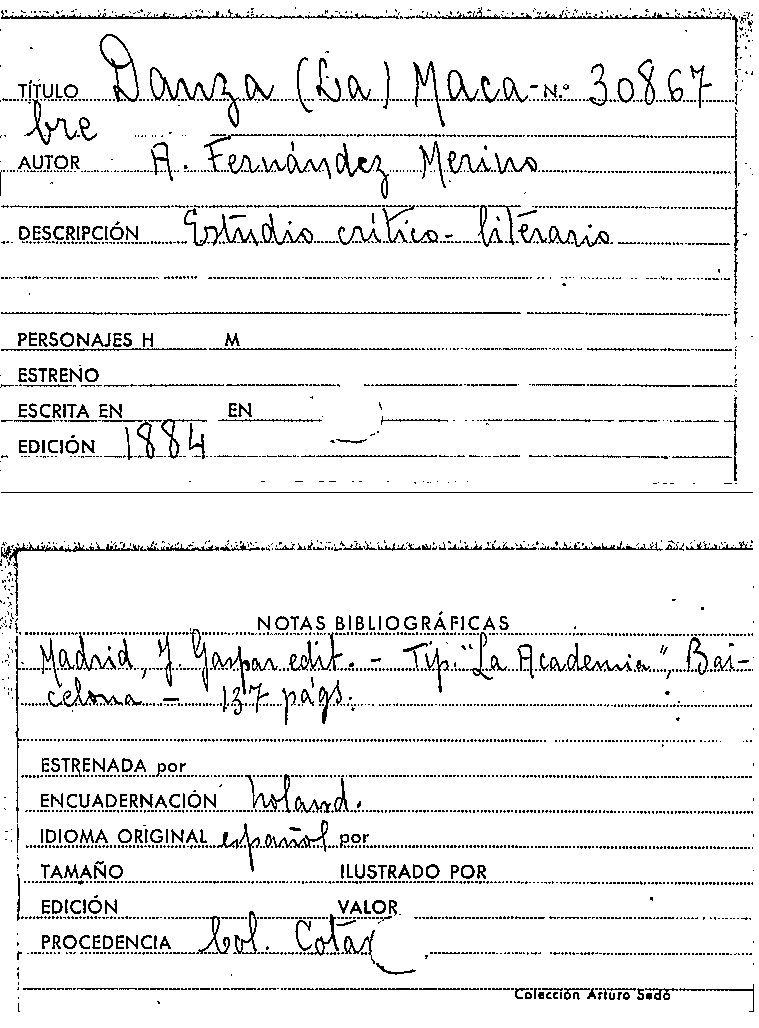 TÍTULO Danza (La) Maca- N.º 30867
bre
AUTOR A. Fernández Merino
DESCRIPCIÓN Estudio crítico-literario
PERSONAJES H M
ESTRENO
ESCRITA EN EN
EDICIÓN 1884
NOTAS BIBLIOGRÁFICAS
Madrid, J. Gaspar edit. - Tip. "La Academia", Bar-
celona - 137 págs.
ESTRENADA por
ENCUADERNACIÓN holand.
IDIOMA ORIGINAL español por
TAMAÑO ILUSTRADO POR
EDICIÓN VALOR
PROCEDENCIA Col. Cotar
Colección Arturo Sedó